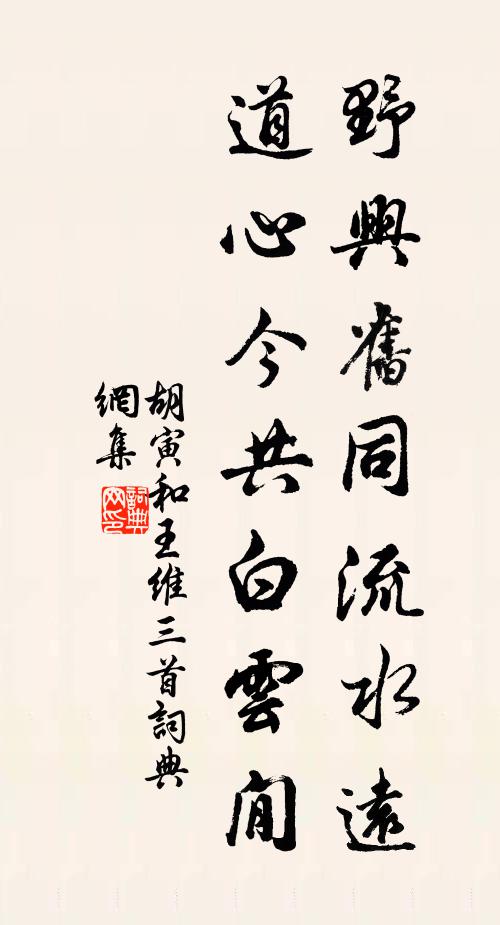 野興舊同流水遠
道心今共白雲閒
胡寅和王維三首詞典
網集
詞典网印